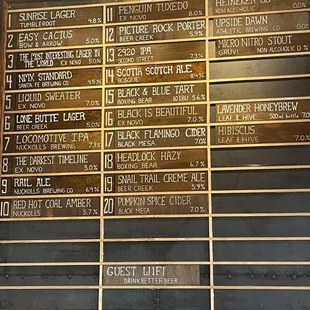 1 SUNRISE LAGER
TUMBLEROOT 4.8%
2 EASY CACTUS
BOW & ARROW 5.0%
3 THE MOST INTERESTING LAGER
IN THE WORLD EX NOVO 5.0%
4 NMX STANDARD
SANTA FE BREWING CO
5 LIQUID SWEATER
EX NOVO 7.0%
6 LONE BUTTE LAGER
BEER CREEK 5.0%
7 LOCOMOTIVE IPA
NUCKOLLS BREWING 7.3%
8 THE DARKEST TIMELINE
EX NOVO
9 RAIL ALE
NUCKOLLS BREWING CO 6.9%
10 RED HOT COAL AMBER
NUCKOLLS 5.7%
11 PENGUIN TUXEDO
EX NOVO 8.0%
12 PICTURE ROCK PORTER
BEER CREEK 5.8%
13 2920 IPA
SECOND STREET 7.2%
14 SCOTIA SCOTCH ALE
BOSQUE 8.3%
15 BLACK & BLUE TART
BLACK MESA 10IBU 5.6%
16 BLACK IS BEAUTIFUL
EX NOVO 7.0%
17 BLACK FLAMINGO CIDER
BLACK MESA 7.5%
18 HEADLOCK HAZY
EX NOVO 6.7%
19 SNAIL TRAIL CREME ALE
BEER CREEK 5.9%
20 PUMPKIN SPICE CIDER
BLACK MESA 7.0%
HEINEKEN 0.0
NON ALCOHOLIC
UPSIDE DAWN
ATHLETIC BREWING CO NON ALC
MICRO NITRO STOUT
GRUVI NON-ALCOHOLIC 0%
LAVENDER HONEYBREW
LEAF & HIVE 500ml bottle 7%
HIBISCUS
LEAF & HIVE 7.0%
GUEST WIFI
DRINKBETTERBEER